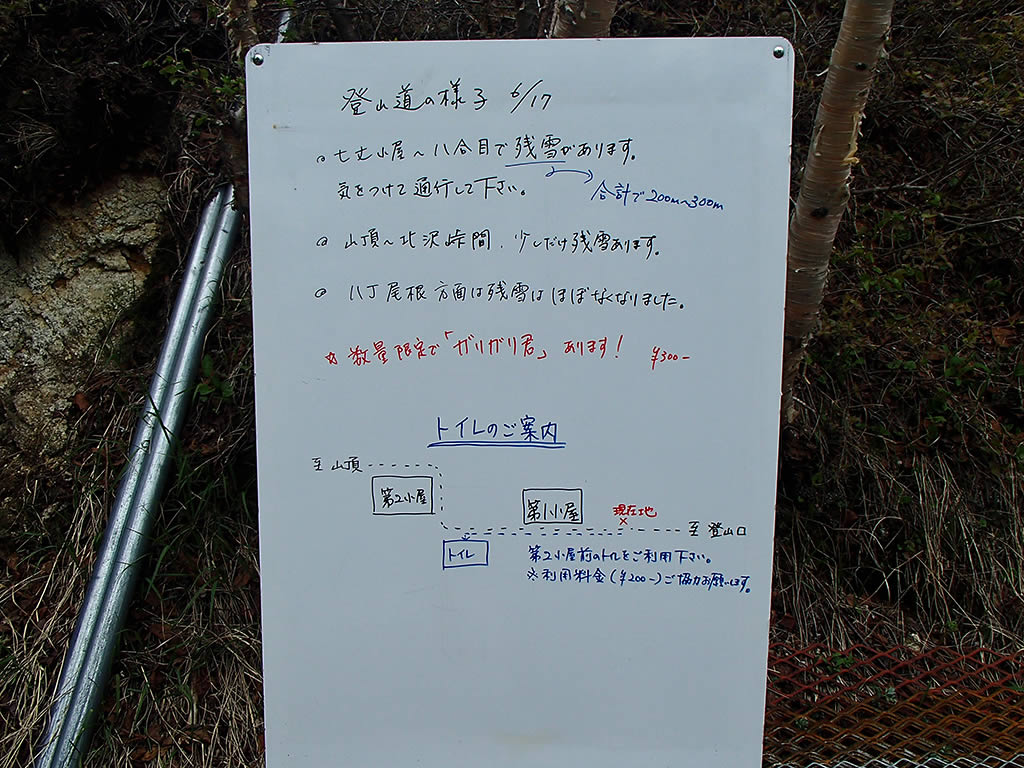 登山道の様子 6/17
○七丈小屋~八合目で残雪があります。
合計で200m~300m
気をつけて通行して下さい。
○山頂~北沢峠間、少しだけ残雪あります。
○八丁尾根方面は残雪はほぼなくなりました。
☆数量限定で「ガリガリ君」あります! ¥300-
トイレのご案内
至山頂
第2小屋
第1小屋
現在地
×
至登山口
トイレ
第2小屋前のトイレをご利用下さい。
※利用料金(¥200-)ご協力お願いします。